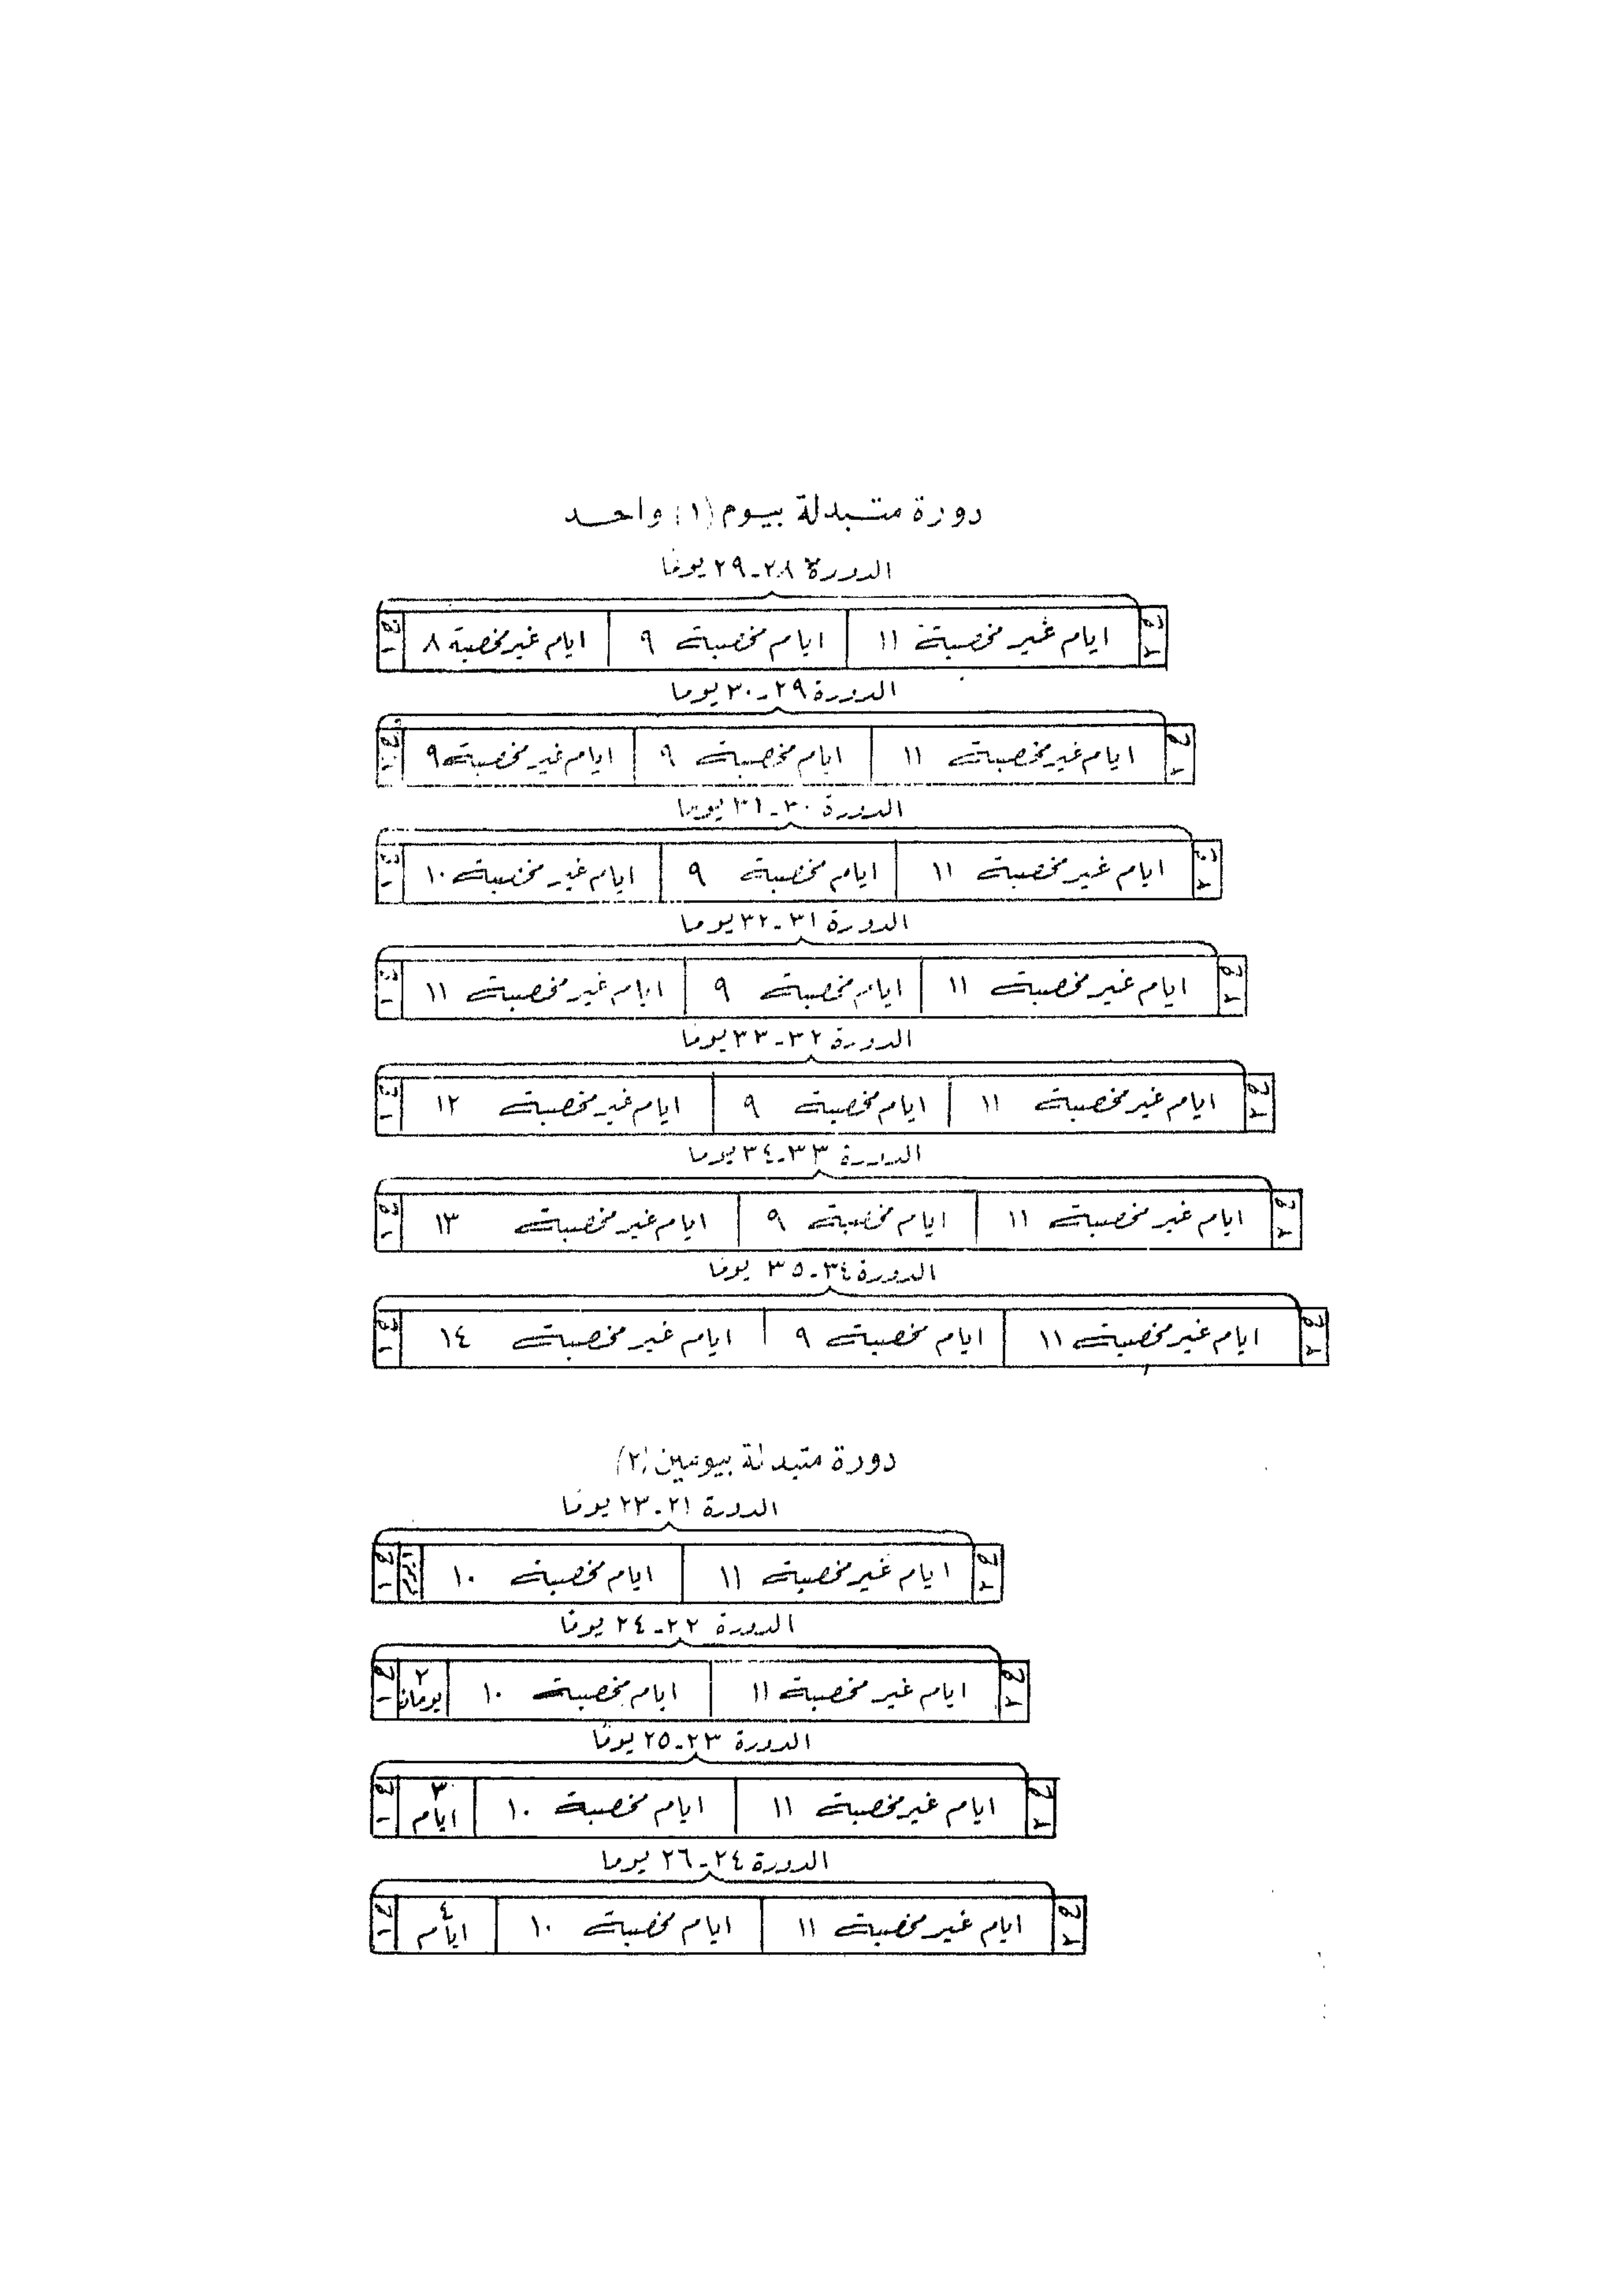 دورة متبدلة بيوم (١) واحد
الدورة ٢٨-٢٩ يومًا
ايام غير مخصبة ١١ ايام مخصبة ٩ ايام غير مخصبة ٨
الدورة ٢٩-٣٠ يوما
ايام غير مخصبة ١١ ايام مخصبة ٩ ايام غير مخصبة ٩
الدورة ٣٠-٣١ يوما
ايام غير مخصبة ١١ ايام مخصبة ٩ ايام غير مخصبة ١٠
الدورة ٣١-٣٢ يوما
ايام غير مخصبة ١١ ايام مخصبة ٩ ايام غير مخصبة ١١
الدورة ٣٢-٣٣ يومًا
ايام غير مخصبة ١١ ايام مخصبة ٩ ايام غير مخصبة ١٢
الدورة ٣٣-٣٤ يوما
ايام غير مخصبة ١١ ايام مخصبة ٩ ايام غير مخصبة ١٣
الدورة ٣٤-٣٥ يومًا
ايام غير مخصبة ١١ ايام مخصبة ٩ ايام غير مخصبة ١٤
دورة متبدلة بيومين (٢)
الدورة ٢١-٢٣ يومًا
ايام غير مخصبة ١١ ايام مخصبة ١٠
الدورة ٢٢-٢٤ يومًا
ايام غير مخصبة ١١ ايام مخصبة ١٠ ٢ يومان
الدورة ٢٣-٢٥ يومًا
ايام غير مخصبة ١١ ايام مخصبة ١٠ ٣ ايام
الدورة ٢٤-٢٦ يوما
ايام غير مخصبة ١١ ايام مخصبة ١٠ ٤ ايام